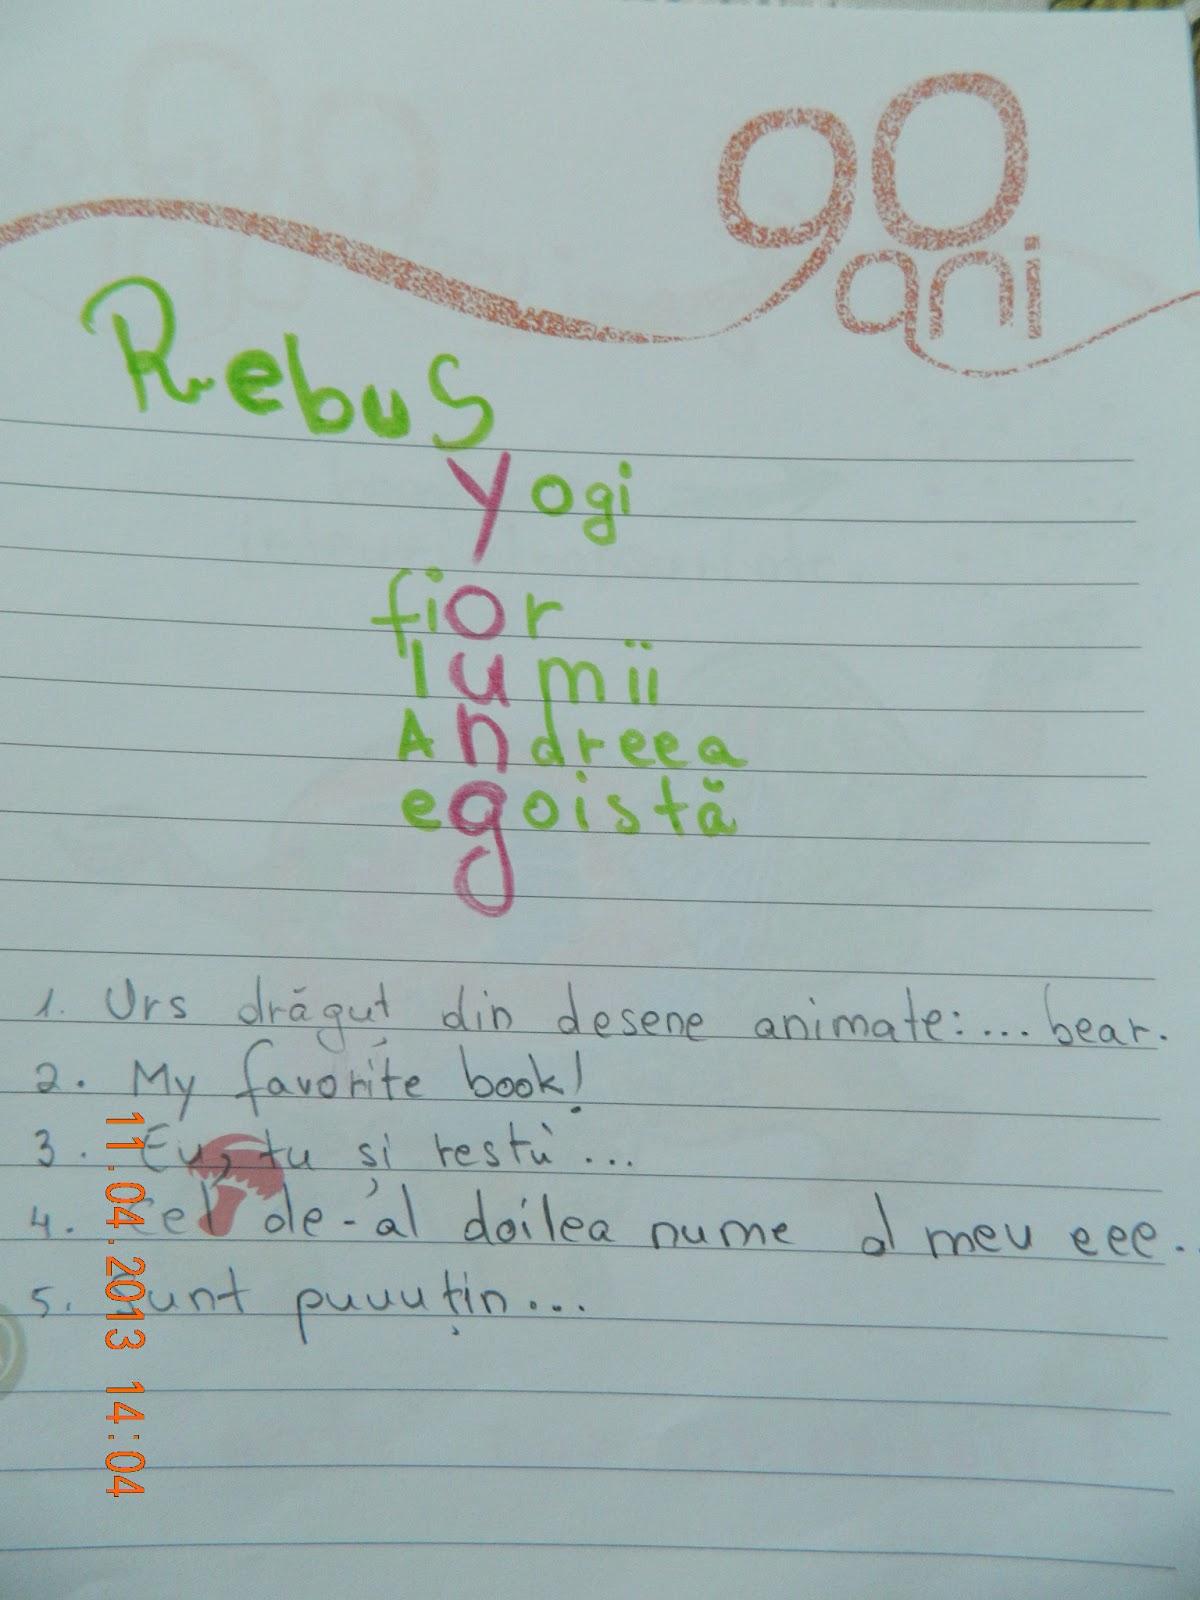 90
ani
Rebus
yogi
fior
lumii
Andreea
egoistă
1. Urs drăguț din desene animate:... bear.
2. My favorite book!
3. Eu, tu și restu' ...
4. Cel de-al doilea nume al meu eee..
5. Sunt puuuțin...
11.04.2013 14:04